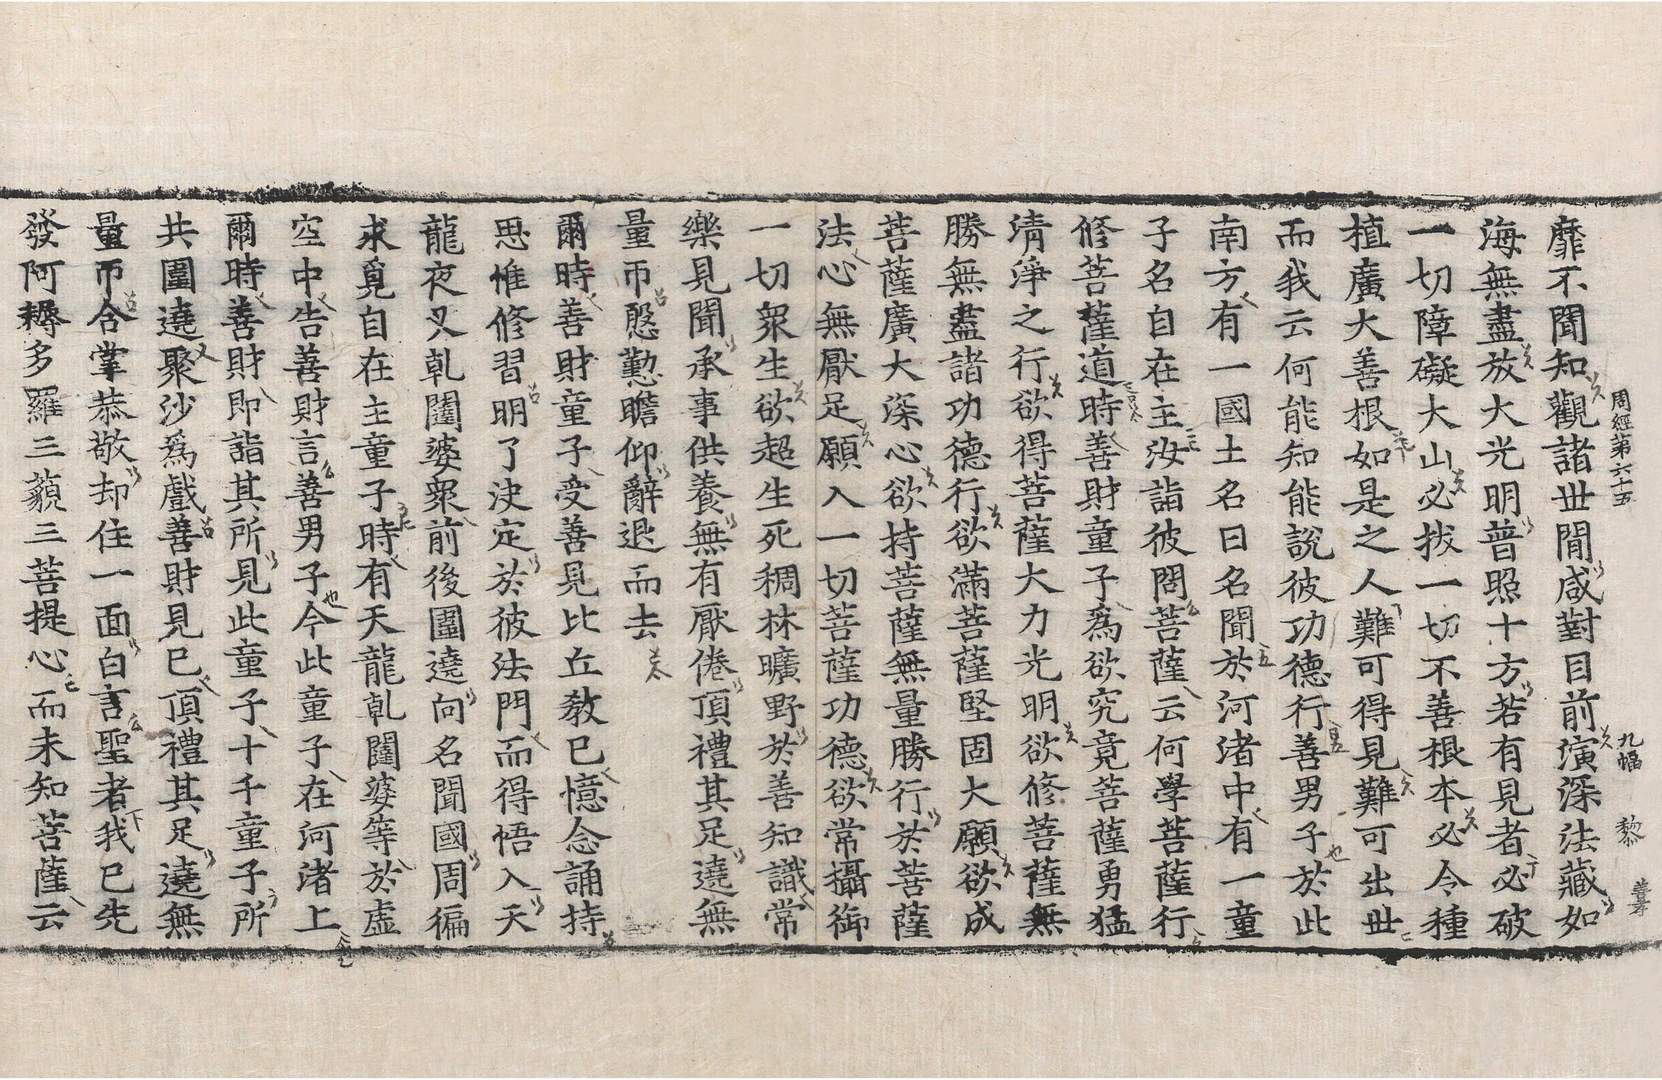 周經第六十五 九幅 黎
靡不聞知觀諸世間咸對目前演深法藏如
海無盡放大光明普照十方若有見者必破
一切障礙大山必拔一切不善根本必令種
植廣大善根如是之人難可得見難可出世
而我云何能知能說彼功德行善男子於此
南方有一國土名曰名聞於河渚中有一童
子名自在主汝詣彼問菩薩云何學菩薩行
修菩薩道時善財童子為欲究竟菩薩勇猛
清淨之行欲得菩薩大力光明欲修菩薩無
勝無盡諸功德行欲滿菩薩堅固大願欲成
菩薩廣大深心欲持菩薩無量勝行於菩薩
法心無厭足願入一切菩薩功德欲常攝御
一切眾生欲超生死稠林曠野於善知識常
樂見聞承事供養無有厭倦頂禮其足遶無
量帀慇懃瞻仰辭退而去
爾時善財童子受善見比丘教已憶念誦持
思惟修習明了決定於彼法門而得悟入天
龍夜叉乹闥婆眾前後圍遶向名聞國周徧
求覓自在主童子時有天龍乹闥婆等於虛
空中告善財言善男子今此童子在河渚上
爾時善財即詣其所見此童子十千童子所
共圍遶聚沙為戲善財見已頂禮其足遶無
量帀合掌恭敬却住一面白言聖者我已先
發阿耨多羅三藐三菩提心而未知菩薩云